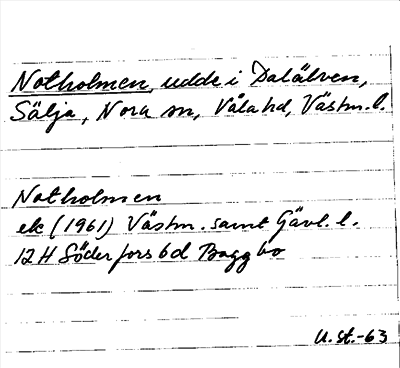 Notholmen, udde i Dalälven,
Sälja, Nora sn, Våla hd, Västm. l.
Notholmen
ek (1961) Västm. samt Gävl. l.
12 H Söderfors 6d Baggbo
U. St. -63